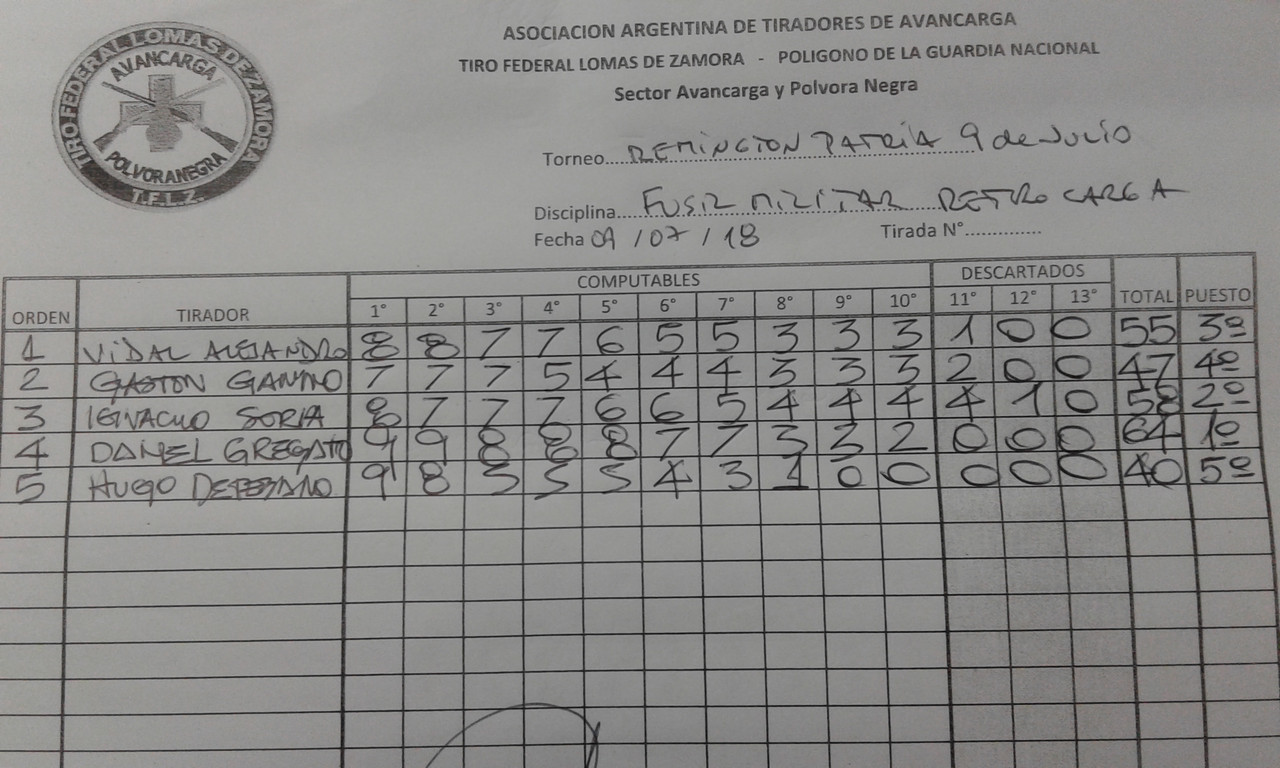 TIRO FEDERAL LOMAS DE ZAMORA
AVANCARGA
POLVORA NEGRA
T.F.L.Z.
ASOCIACION ARGENTINA DE TIRADORES DE AVANCARGA
TIRO FEDERAL LOMAS DE ZAMORA - POLIGONO DE LA GUARDIA NACIONAL
Sector Avancarga y Polvora Negra
Torneo....REMINGTON PATRIA 9 de Julio
Disciplina.....FUSIL MILITAR RETRO CARGA
Fecha 09 / 07 / 18 Tirada N°..............
COMPUTABLES DESCARTADOS
ORDEN TIRADOR 1° 2° 3° 4° 5° 6° 7° 8° 9° 10° 11° 12° 13° TOTAL PUESTO
1 VIDAL ALEJANDRO 8 8 7 7 6 5 5 3 3 3 1 0 0 55 3º
2 GASTON GANINO 7 7 7 5 4 4 4 3 3 3 2 0 0 47 4º
3 IGNACIO SORIA 8 7 7 7 6 6 5 4 4 4 4 1 0 58 2º
4 DANIEL GREGATO 9 9 8 8 8 7 7 3 3 2 0 0 0 64 1º
5 HUGO 9 8 5 5 5 4 3 1 0 0 0 0 0 40 5º